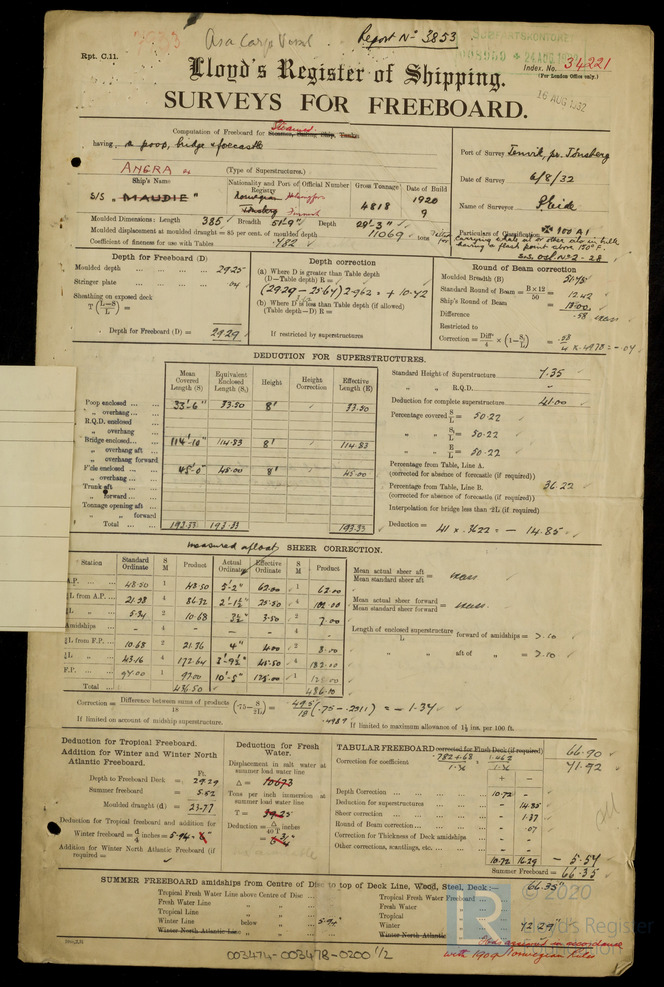 As a Cargo Vessel
Report No 3853
Rpt. C.11.
24 AUG 1932
Index. No. 34221
(For London Office only.)
Lloyd's Register of Shipping.
16 AUG 1932
SURVEYS FOR FREEBOARD.
Computation of Freeboard for Steamer, Sailing Ship, Tanker
Steamer
having a poop, bridge & forecastle
(Type of Superstructures.)
Port of Survey Tenvik, pr. Tönsberg
ANGRA ex
Ship's Name
Nationality and Port of Registry
Official Number
Gross Tonnage
Date of Build
Date of Survey 6/8/32
S/S "MAUDIE"
Norwegian
Tönsberg
4818
1920
9
Name of Surveyor
Moulded Dimensions: Length 385' Breadth 51'-9" Depth 29'-3"
Particulars of Classification 100 A1
Moulded displacement at moulded draught = 85 per cent. of moulded depth 11069 tons
carrying whale oil or other oils in bulk
having a flash point above 150° F.
Coefficient of fineness for use with Tables .782
Depth for Freeboard (D)
Moulded depth 29.25
Stringer plate .04
Sheathing on exposed deck
T (L-S/L) =
Depth for Freeboard (D) = 29.29
Depth correction
(a) Where D is greater than Table depth
(D—Table depth) R =
(29.29 - 25.67) 2.962 = + 10.72
(b) Where D is less than Table depth (if allowed)
(Table depth—D) R =
If restricted by superstructures
Round of Beam correction
Moulded Breadth (B) 51.75
Standard Round of Beam = B×12/50 = 12.42
Ship's Round of Beam = 13.00
Difference .58
Restricted to
Correction = Diff/4 × (1-S/L) = .58/4 × .4978 = -.07
DEDUCTION FOR SUPERSTRUCTURES.
Mean Covered Length (S)
Equivalent Enclosed Length (S₁)
Height
Height Correction
Effective Length (E)
Poop enclosed 33'-6" 33.50 8' 33.50
„ overhang
R.Q.D. enclosed
„ overhang
Bridge enclosed 114'-10" 114.83 8' 114.83
„ overhang aft
„ overhang forward
F'cle enclosed 45'-0" 45.00 8' 45.00
„ overhang
Trunk aft
„ forward
Tonnage opening aft
„ „ forward
Total 193.33 193.33 193.33
Standard Height of Superstructure 7.35
„ „ R.Q.D.
Deduction for complete superstructure 41.00
Percentage covered S/L = 50.22
„ „ S₁/L = 50.22
„ „ E/L = 50.22
Percentage from Table, Line A.
(corrected for absence of forecastle (if required))
Percentage from Table, Line B. 36.22
(corrected for absence of forecastle (if required))
Interpolation for bridge less than ·2L (if required)
Deduction = 41 x .3622 = - 14.85
measured afloat SHEER CORRECTION.
Station
Standard Ordinate
S M
Product
Actual Ordinate
Effective Ordinate
S M
Product
A.P. 48.50 1 48.50 5'-2" 62.00 1 62.00
⅙L from A.P. 21.58 4 86.32 2'-1½" 25.50 4 102.00
⅓L „ 5.34 2 10.68 3½" 3.50 2 7.00
Amidships - 4 - - - 4
⅓L from F.P. 10.68 2 21.36 4" 4.00 2 8.00
⅙L „ 43.16 4 172.64 3'-9½" 45.50 4 182.00
F.P. 97.00 1 97.00 10'-5" 125.00 1 125.00
Total 436.50 486.10
Mean actual sheer aft
Mean standard sheer aft =
Mean actual sheer forward
Mean standard sheer forward =
Length of enclosed superstructure/L forward of amidships = >.10
„ „ aft of „ = >.10
Correction = Difference between sums of products/18 (·75-S/2L) = 49.5/18 (.75 - .2511) = - 1.37
.4989
If limited on account of midship superstructure.
If limited to maximum allowance of 1½ ins. per 100 ft.
Deduction for Tropical Freeboard.
Addition for Winter and Winter North Atlantic Freeboard.
Ft.
Depth to Freeboard Deck = 29.29
Summer freeboard = 5.52
Moulded draught (d) = 23.77
Deduction for Tropical freeboard and addition for
Winter freeboard = d/4 inches = 5.94 = 6"
Addition for Winter North Atlantic Freeboard (if required) =
Deduction for Fresh Water.
Displacement in salt water at summer load water line
Δ = 10673
Tons per inch immersion at summer load water line
T = 39.25
Deduction = Δ/40 T inches
TABULAR FREEBOARD corrected for Flush Deck (if required) 66.90
Correction for coefficient .782 + .68/1.36 = 1.462/1.36 71.92
+ -
Depth Correction 10.72 -
Deduction for superstructures - 14.85
Sheer correction - 1.37
Round of Beam correction - .07
Correction for Thickness of Deck amidships - -
Other corrections, scantlings, etc. - -
10.72 16.29 - 5.57
Summer Freeboard = 66.35
SUMMER FREEBOARD amidships from Centre of Disc to top of Deck Line, Wood, Steel, Deck:— 66.35"
Tropical Fresh Water Line above Centre of Disc
Fresh Water Line „ „
Tropical Line „ „
Winter Line below „ 5.94"
Winter North Atlantic Line „ „
Tropical Fresh Water Freeboard
Fresh Water „
Tropical „
Winter „ 72.29"
Winter North Atlantic
© 2020
Lloyd's Register
with 1909 Norwegian Rules
003474-003478-0200 1/2